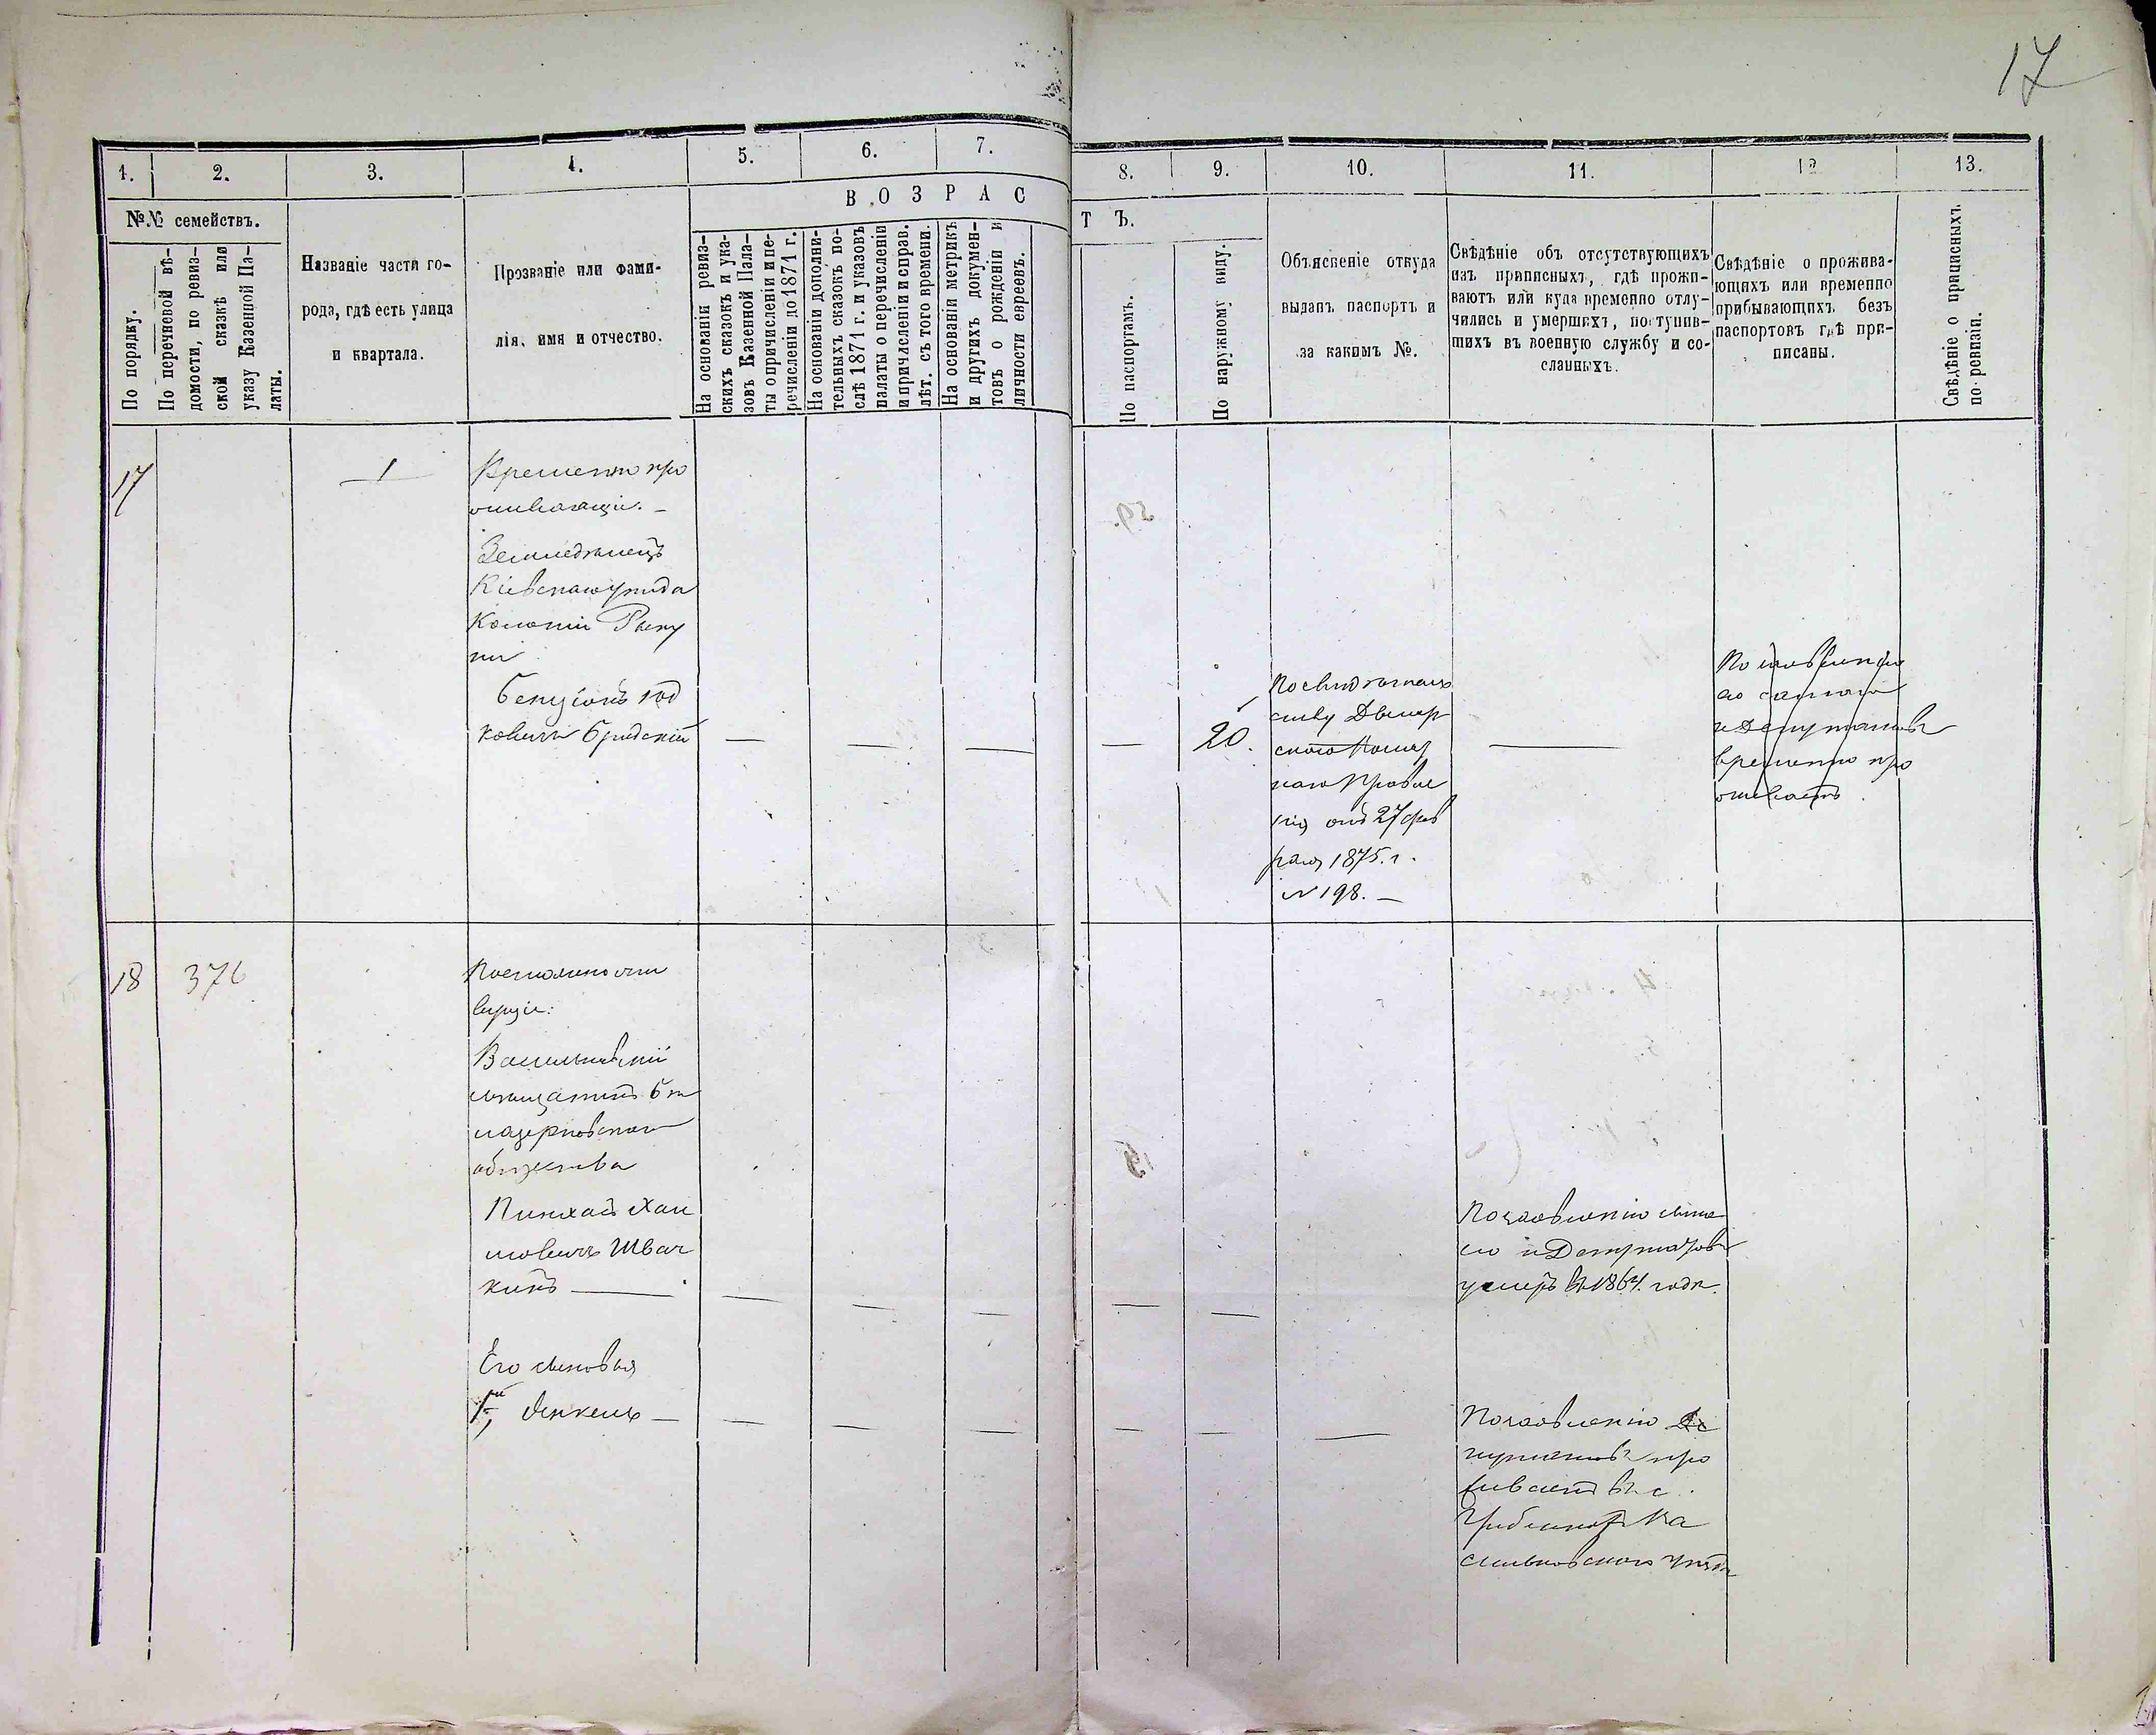 17
1.
2.
3.
4.
5.
6.
7.
8.
9.
10.
11.
12
13.
В О З Р А С
Т Ъ.
№№ семействъ.
По порядку.
По перечневой вѣ-
домости, по ревиз-
ской сказкѣ или
указу Казенной Па-
латы.
Названіе части го-
рода, гдѣ есть улица
и квартала.
Прозваніе или фами-
лія, имя и отчество.
На основаніи ревиз-
скихъ сказокъ и ука-
зовъ Казенной Пала-
ты о причисленіи и пе-
речисленіи до 1871 г.
На основаніи дополни-
тельныхъ сказокъ по-
слѣ 1871 г. и указовъ
палаты о перечисленіи
и причисленіи и справ.
лѣт. съ того времени.
На основаніи метрикъ
и другихъ докумен-
товъ о рожденіи и
личности евреевъ.
По паспортамъ.
По наружному виду.
Объясненіе откуда
выданъ паспортъ и
за какимъ №.
Свѣдѣніе объ отсутствующихъ
изъ приписныхъ, гдѣ прожи-
ваютъ или куда временно отлу-
чились и умершихъ, поступив-
шихъ въ военную службу и со-
сланныхъ.
Свѣдѣніе о прожива-
ющихъ или временно
прибывающихъ безъ
паспортовъ гдѣ при-
писаны.
Свѣдѣніе о приписныхъ
по ревизіи.
17
1
Временно про
живающіе. —
Земледѣлецъ
Кіевскаго уѣзда
Колоніи
Бенціонъ
ковичъ Бродскій
20.
По свидѣтель
ству
скаго
наго Правле
нія отъ 27 фев
раля 1875. г.
№ 198. —
По заявленію
и Депутатовъ
временно про
живаетъ.
18
376
Постоянно жи
вущіе:
Васильковскій
мѣщанинъ Бѣ
лоцерковскаго
общества
Пинхасъ Хаи
мовичъ Швач
кинъ
По заявленію
и Депутатовъ
умеръ въ 1864. году.
Его сыновья
1й, Янкель —
По заявленію Де
путатовъ про
живаетъ въ с.
Ва
сильковскаго уѣзда